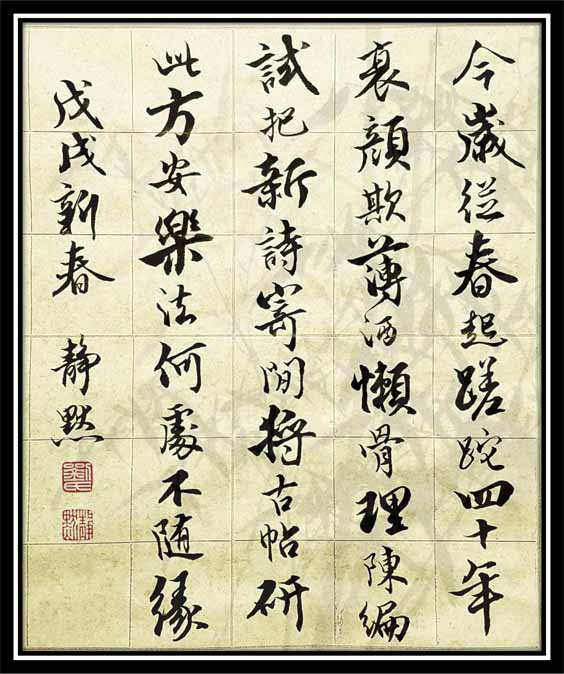 今歲從春起蹉跎四十年
衰顏欺薄酒懶骨理陳編
試把新詩寄閒將古帖研
此方安樂法何處不隨緣
戊戌新春 靜默
靜默